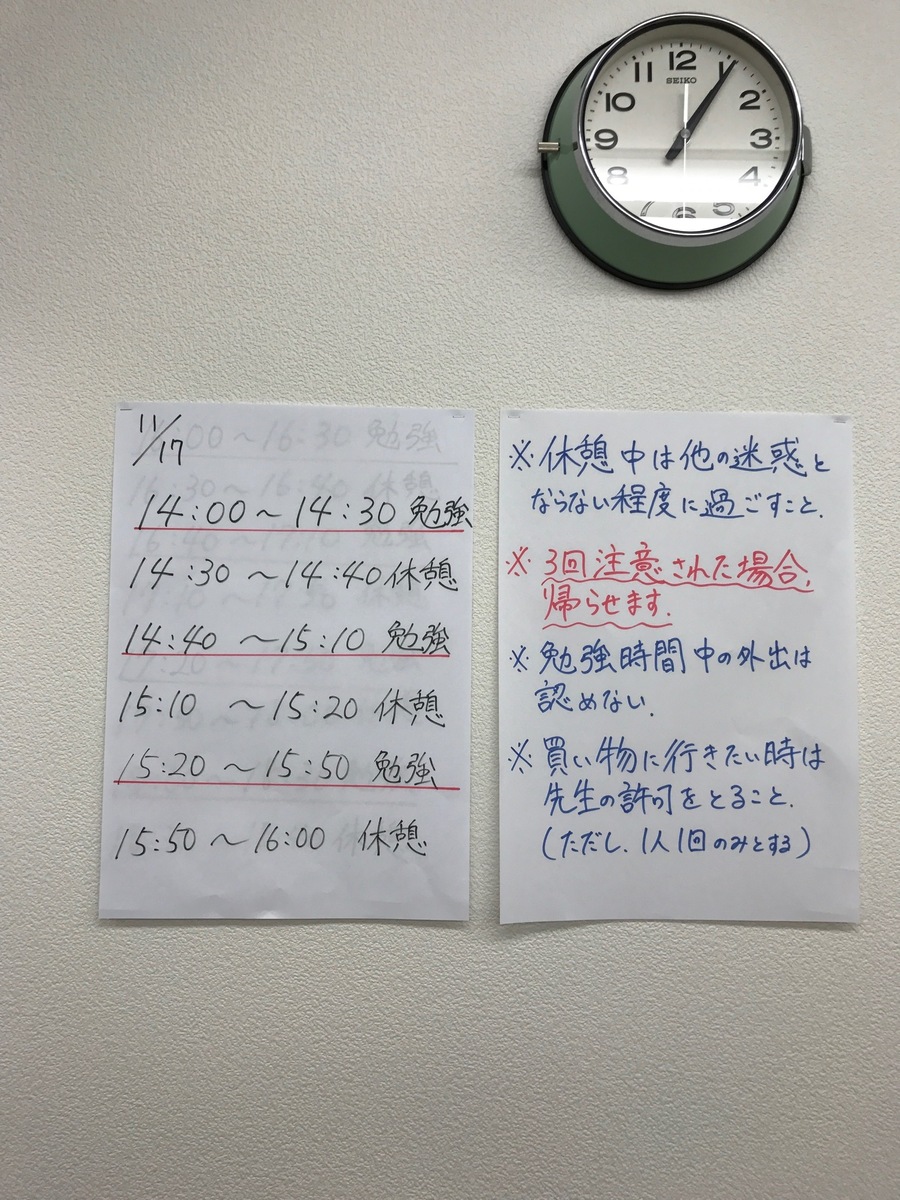 12
11
1
SEIKO
10
2
9
3
8
4
7
6
5
11/17
14:00～14:30 勉強
14:30 ～14:40 休憩
14:40 ～15:10 勉強
15:10 ～15:20 休憩
15:20 ～15:50 勉強
15:50 ～16:00 休憩
※休憩中は他の迷惑と
ならない程度に過ごすこと.
※3回注意された場合,
帰らせます.
※勉強時間中の外出は
認めない.
※買い物に行きたい時は
先生の許可をとること.
(ただし.1人1回のみとする)